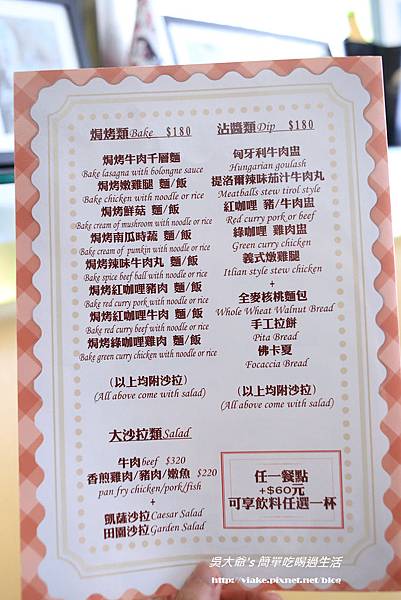 焗烤類Bake $180
焗烤牛肉千層麵
Bake lasagna with bolongne sauce
焗烤嫩雞腿 麵/飯
Bake chicken with noodle or rice
焗烤鮮菇 麵/飯
Bake cream of mushroom with noodle or rice
焗烤南瓜時蔬 麵/飯
Bake cream of punkin with noodle or rice
焗烤辣味牛肉丸 麵/飯
Bake spice beef ball with noodle or rice
焗烤紅咖哩豬肉 麵/飯
Bake red curry pork with noodle or rice
焗烤紅咖哩牛肉 麵/飯
Bake red curry beef with noodle or rice
焗烤綠咖哩雞肉 麵/飯
Bake green curry chicken with noodle or rice
(以上均附沙拉)
(All above come with salad)
大沙拉類Salad
牛肉beef $320
香煎雞肉/豬肉/嫩魚 $220
pan fry chicken/pork/fish
+
凱薩沙拉Caesar Salad
田園沙拉Garden Salad
沾醬類Dip $180
匈牙利牛肉盅
Hungarian goulash
提洛爾辣味茄汁牛肉丸
Meatballs stew tirol style
紅咖哩 豬/牛肉盅
Red curry pork or beef
綠咖哩 雞肉盅
Green curry chicken
義式燉雞腿
Itlian style stew chicken
+
全麥核桃麵包
Whole Wheat Walnut Bread
手工拉餅
Pita Bread
佛卡夏
Focaccia Bread
(以上均附沙拉)
(All above come with salad)
任一餐點
+$60元
可享飲料任選一杯
吳大爺's 簡單吃喝過生活
http://viake.pixnet.net/blog